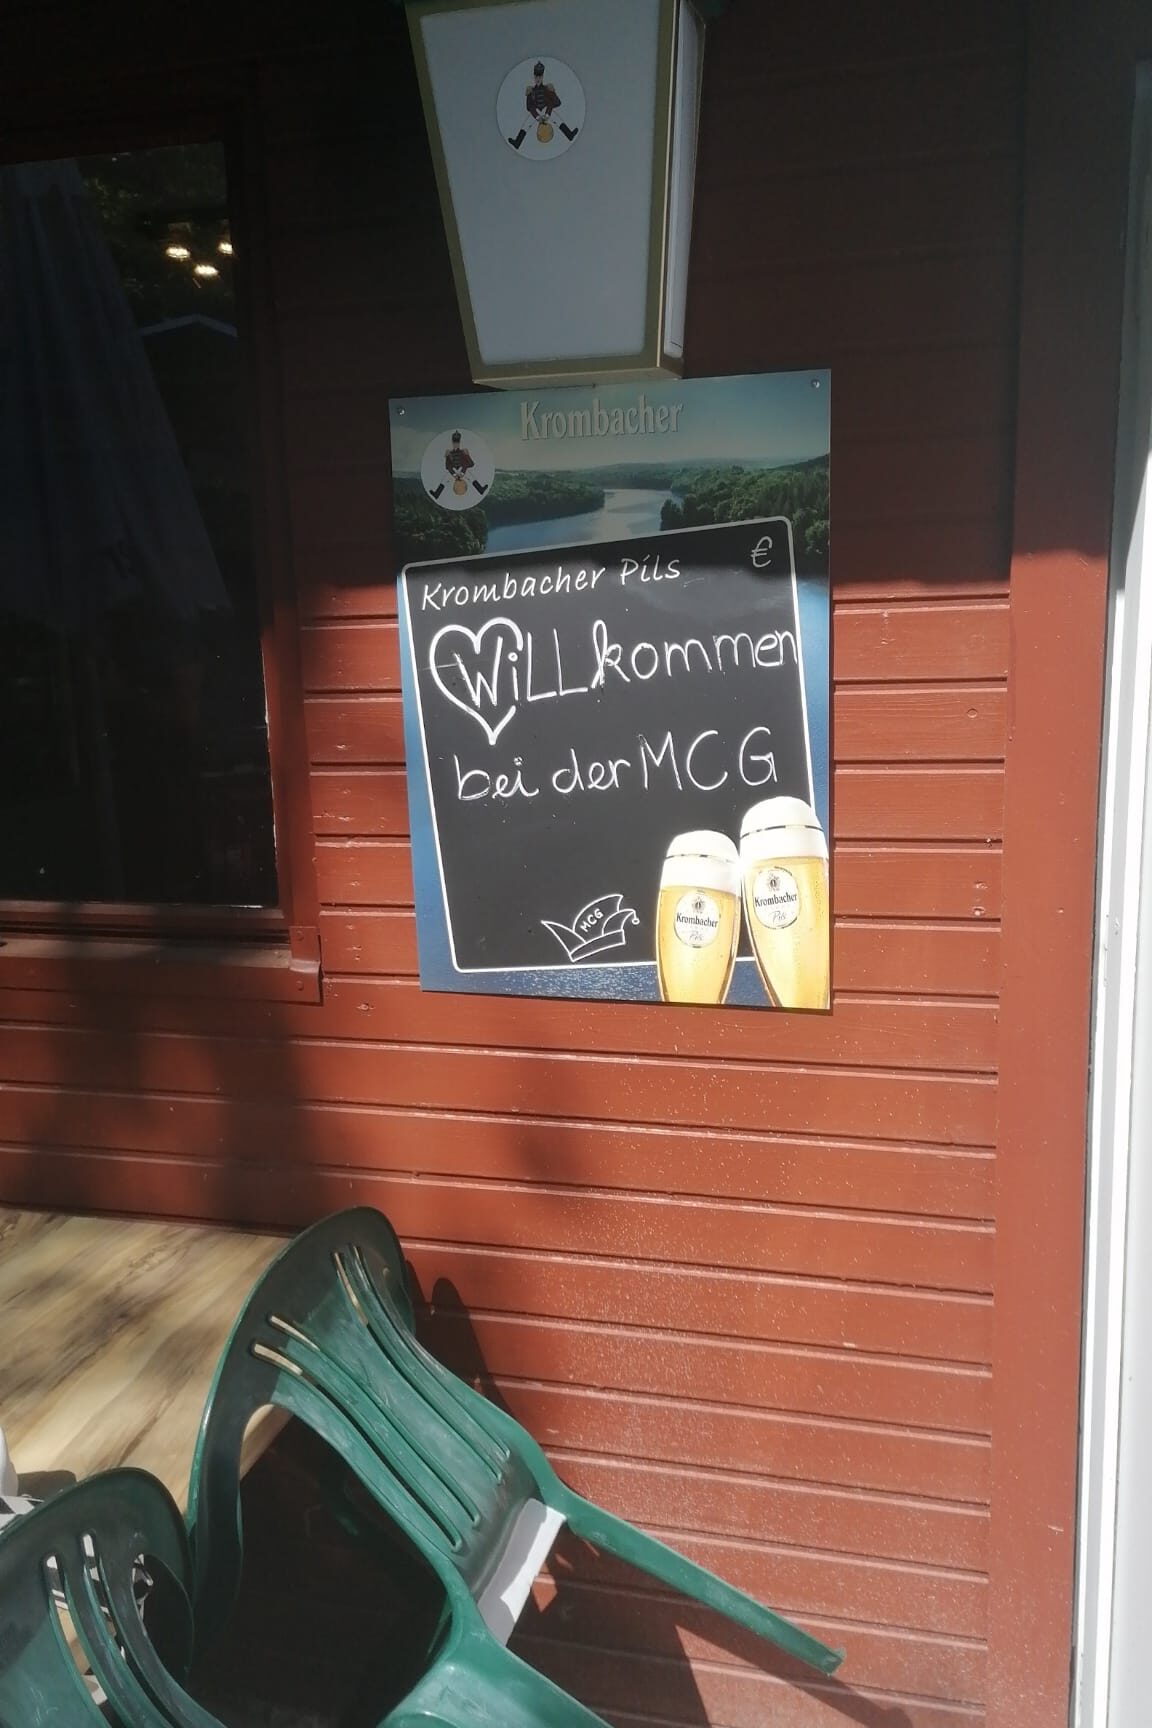 Krombacher
Krombacher Pils €
Willkommen
bei der MCG
MCG
Krombacher
Pils
Krombacher
Pils